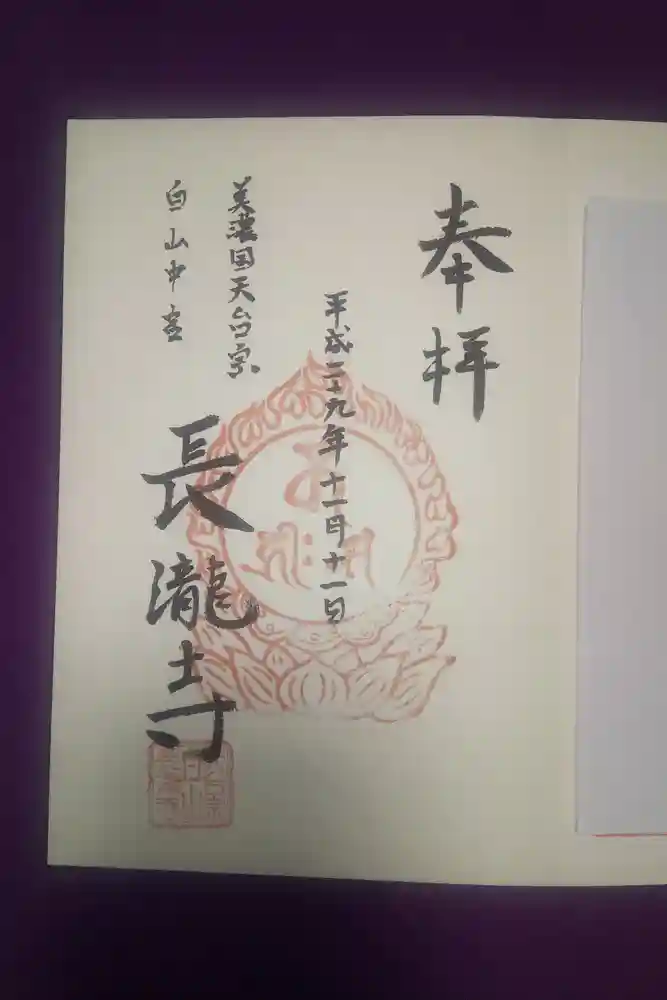 奉拝
平成二十九年十一月十一日
美濃国天台宗
白山中宮
長瀧寺